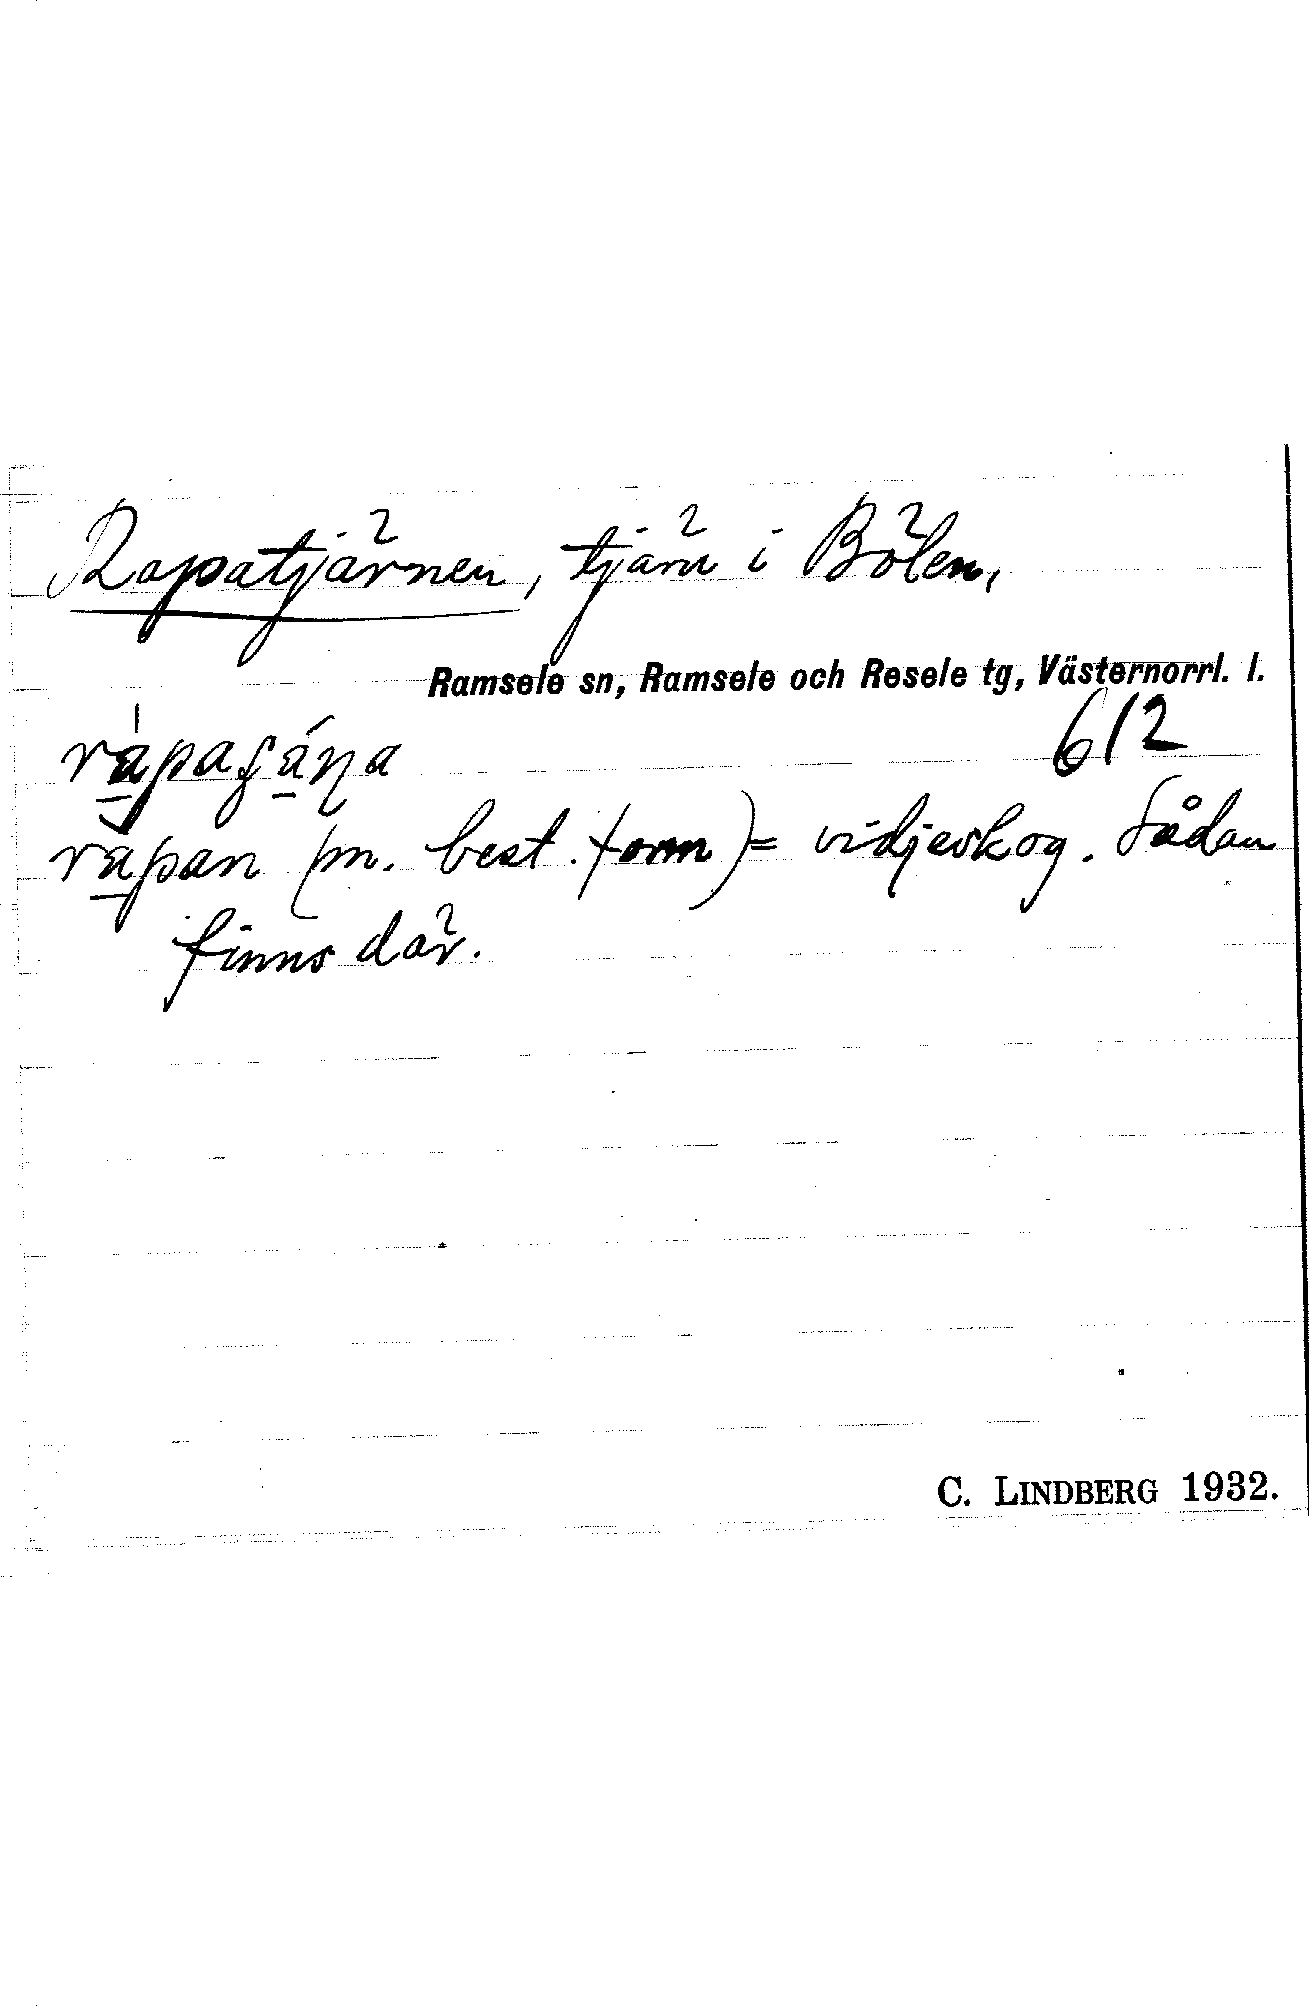 Rapatjärnen, tjärn i Bölen,
Ramsele sn, Ramsele och Resele tg, Västernorrl. l.
612
rapan (m. best. form) = vidjeskog. Sådan
finns där.
C. LINDBERG 1932.